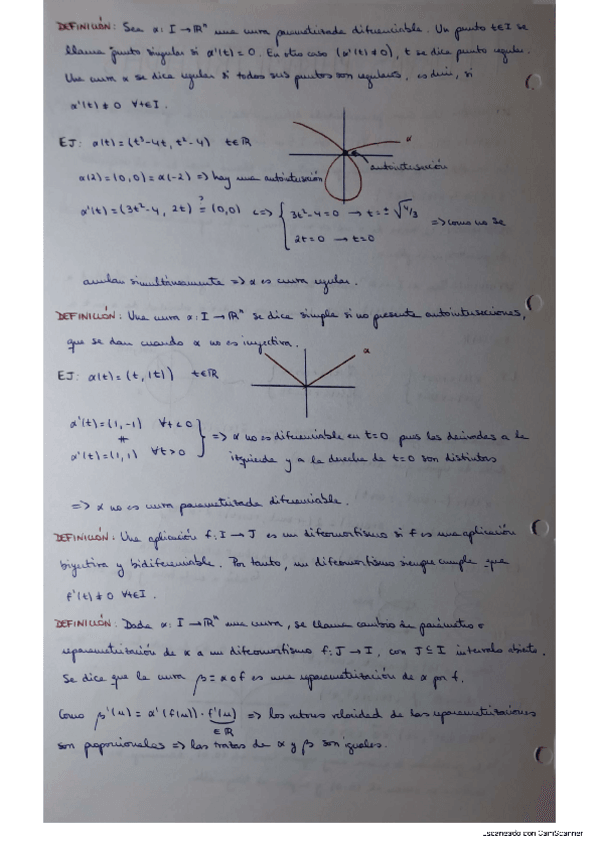 DEFINICIÓN: Sea α: I → ℝⁿ una curva parametrizada diferenciable. Un punto t∈I se
llama punto singular si α'(t) = 0. En otro caso (α'(t) ≠ 0), t se dice punto regular.
Una curva α se dice regular si todos sus puntos son regulares, es decir, si
α'(t) ≠ 0 ∀t∈I.
EJ: α(t) = (t³-4t, t²-4) t∈ℝ
α
autointersección
α(2) = (0,0) = α(-2) => hay una autointersección
α'(t) = (3t²-4, 2t) ?= (0,0) <=> { 3t²-4=0 → t=±√4/3
2t=0 → t=0
=> como no se
anulan simultáneamente => α es curva regular.
DEFINICIÓN: Una curva α: I → ℝⁿ se dice simple si no presenta autointersecciones,
que se dan cuando α no es inyectiva.
α
EJ: α(t) = (t, |t|) t∈ℝ
α'(t) = (1,-1) ∀t<0
≠
α'(t) = (1,1) ∀t>0
} => α no es diferenciable en t=0 pues las derivadas a la
izquierda y a la derecha de t=0 son distintas
=> α no es curva parametrizada diferenciable.
DEFINICIÓN: Una aplicación f: I → J es un difeomorfismo si f es una aplicación
biyectiva y bidiferenciable. Por tanto, un difeomorfismo siempre cumple que
f'(t) ≠ 0 ∀t∈I.
DEFINICIÓN: Dada α: I → ℝⁿ una curva, se llama cambio de parámetro o
reparametrización de α a un difeomorfismo f: J → I, con J⊆I intervalo abierto.
Se dice que la curva β = α∘f es una reparametrización de α por f.
Como β'(u) = α'(f(u)) · f'(u) => los vectores velocidad de las reparametrizaciones
∈ℝ
son proporcionales => las trazas de α y β son iguales.
Escaneado con CamScanner